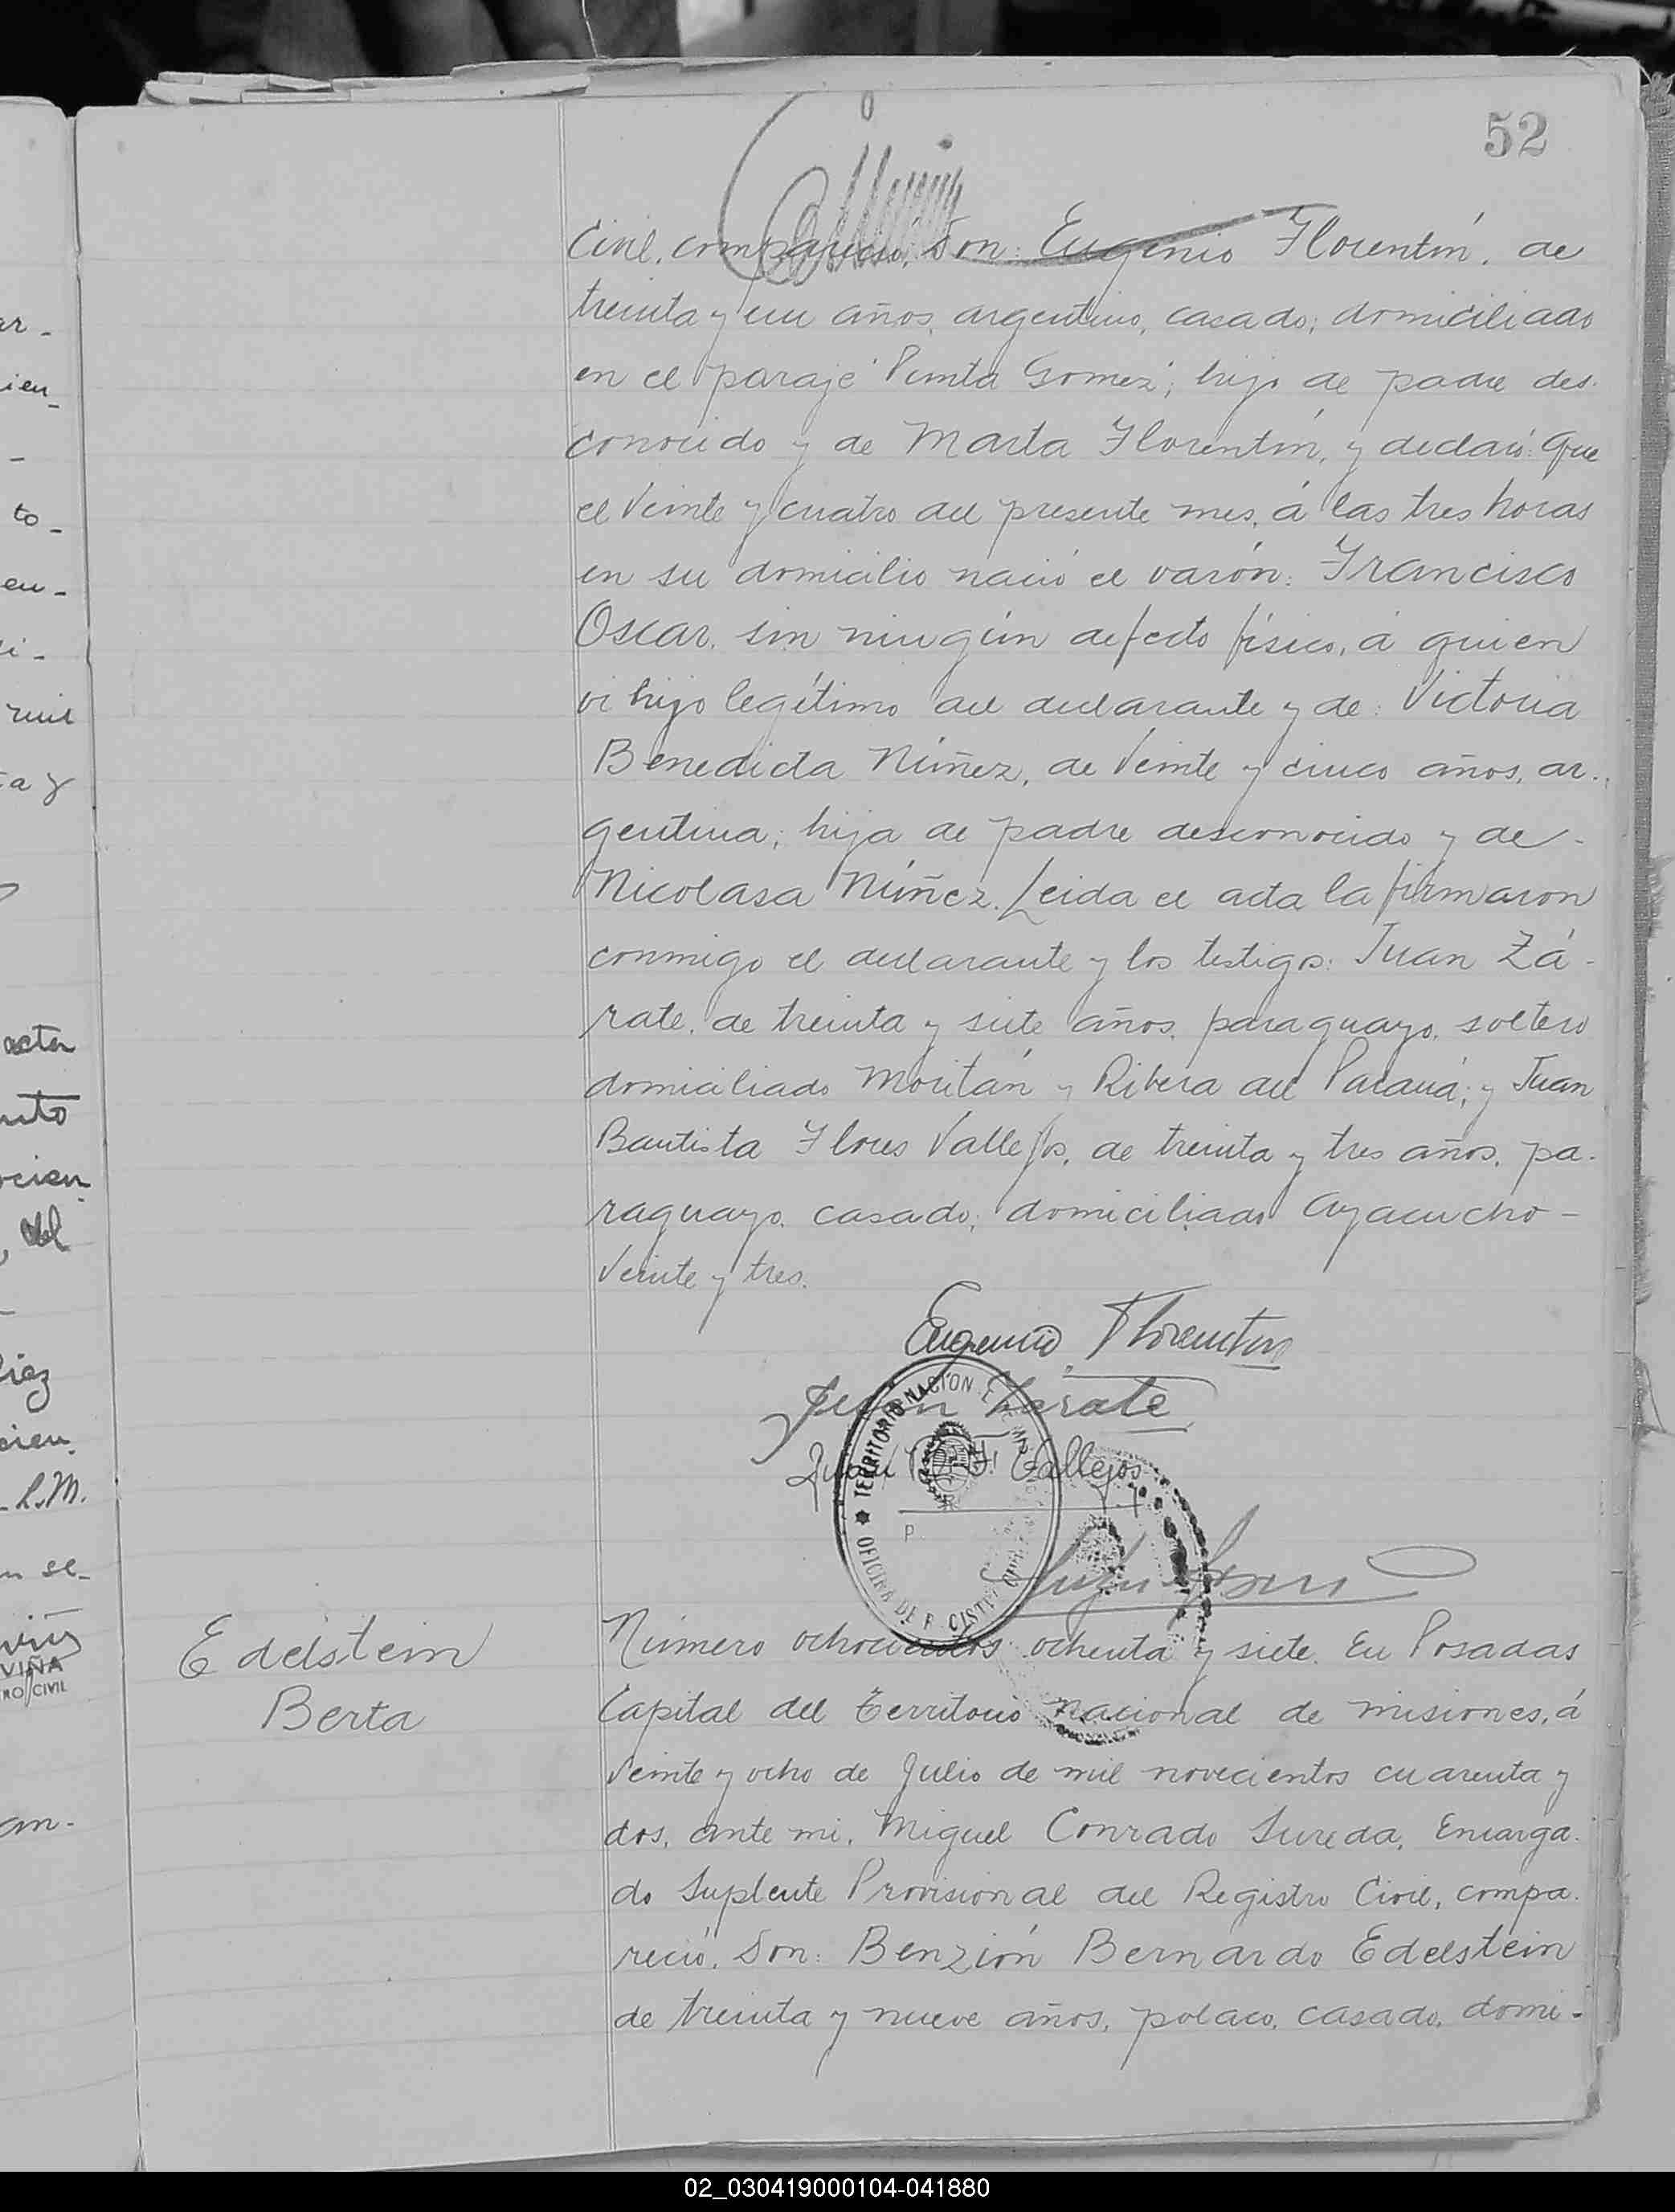 52
Civil, compareció, Don: Eugenio Florentín, de
treinta y un años, argentino, casado; domiciliado
en el paraje "Punta Gomez"; hijo de padre des-
conocido y de Marta Florentín, y declaró: Que
el veinte y cuatro del presente mes, á las tres horas
en su domicilio nació el varón: Francisco
Oscar, sin ningún defecto físico, á quien
vi hijo legítimo del declarante y de: Victoria
Benedicta Núñez, de veinte y cinco años, ar-
gentina; hija de padre desconocido y de -
Nicolasa Núñez. Leida el acta la firmaron
conmigo el declarante y los testigos: Juan Zá-
rate, de treinta y siete años, paraguayo, soltero
domiciliado Moritán y Ribera del Paraná; y Juan
Bautista Flores Vallejos, de treinta y tres años, pa-
raguayo, casado; domiciliado Ayacucho -
veinte y tres.
Eugenio Florentin
Juan Zarate
Juan B. F. Vallejos
TERRITORIO NACIONAL DE MISIONES
OFICINA DE REGISTRO CIVIL
Edelstein
Berta
Número ochocientos ochenta y siete. En Posadas
Capital del Territorio Nacional de Misiones, á
veinte y ocho de Julio de mil novecientos cuarenta y
dos, ante mi, Miguel Conrado Sureda, Encarga-
do Suplente Provisional del Registro Civil, compa-
reció, Don: Benzión Bernardo Edelstein
de treinta y nueve años, polaco, casado, domi-
ar-
ien-
-
to-
en-
i-
mil
ta y
acta
nto
ocien
, del
iez
cien
L.M.
n se-
VIÑA
RO CIVIL
an-
02_030419000104-041880